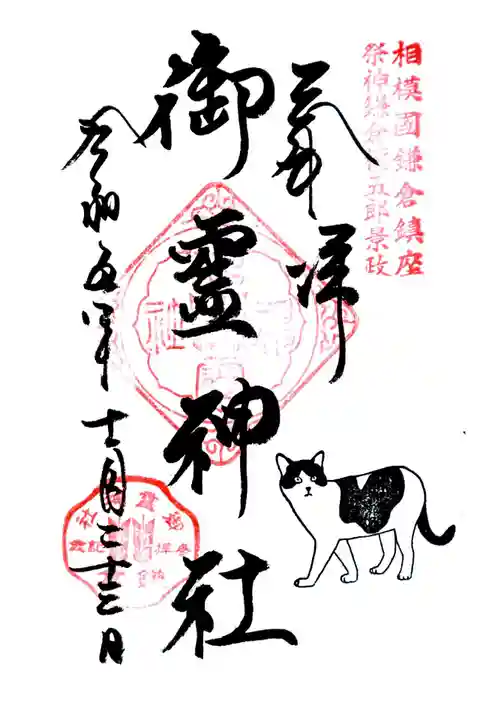 相模國鎌倉鎮座
祭神鎌倉権五郎景政
奉拝
御靈神社
令和五年十一月二十三日